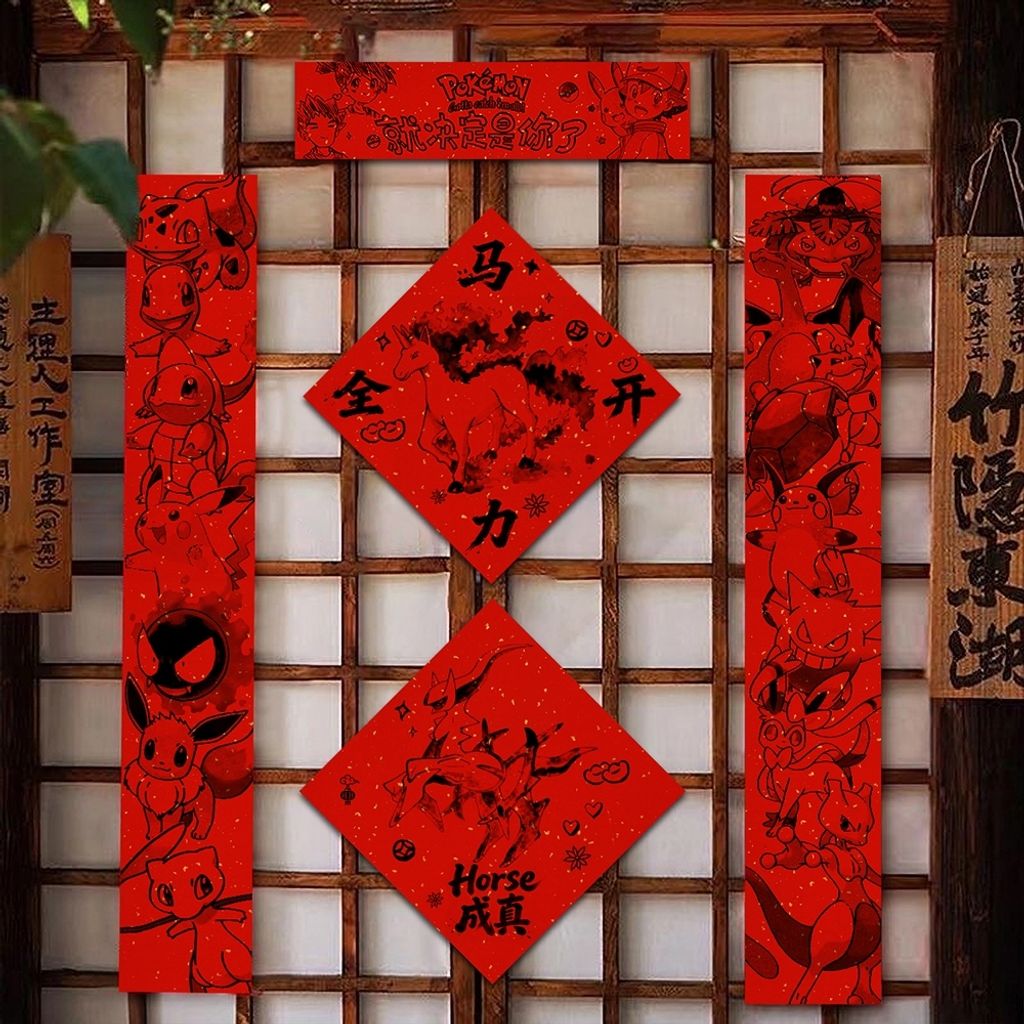 POKéMON
Gotta catch 'em all!
就决定是你了
马
全 开
力
Horse
成真
主狸人工作室
竹隱東湖